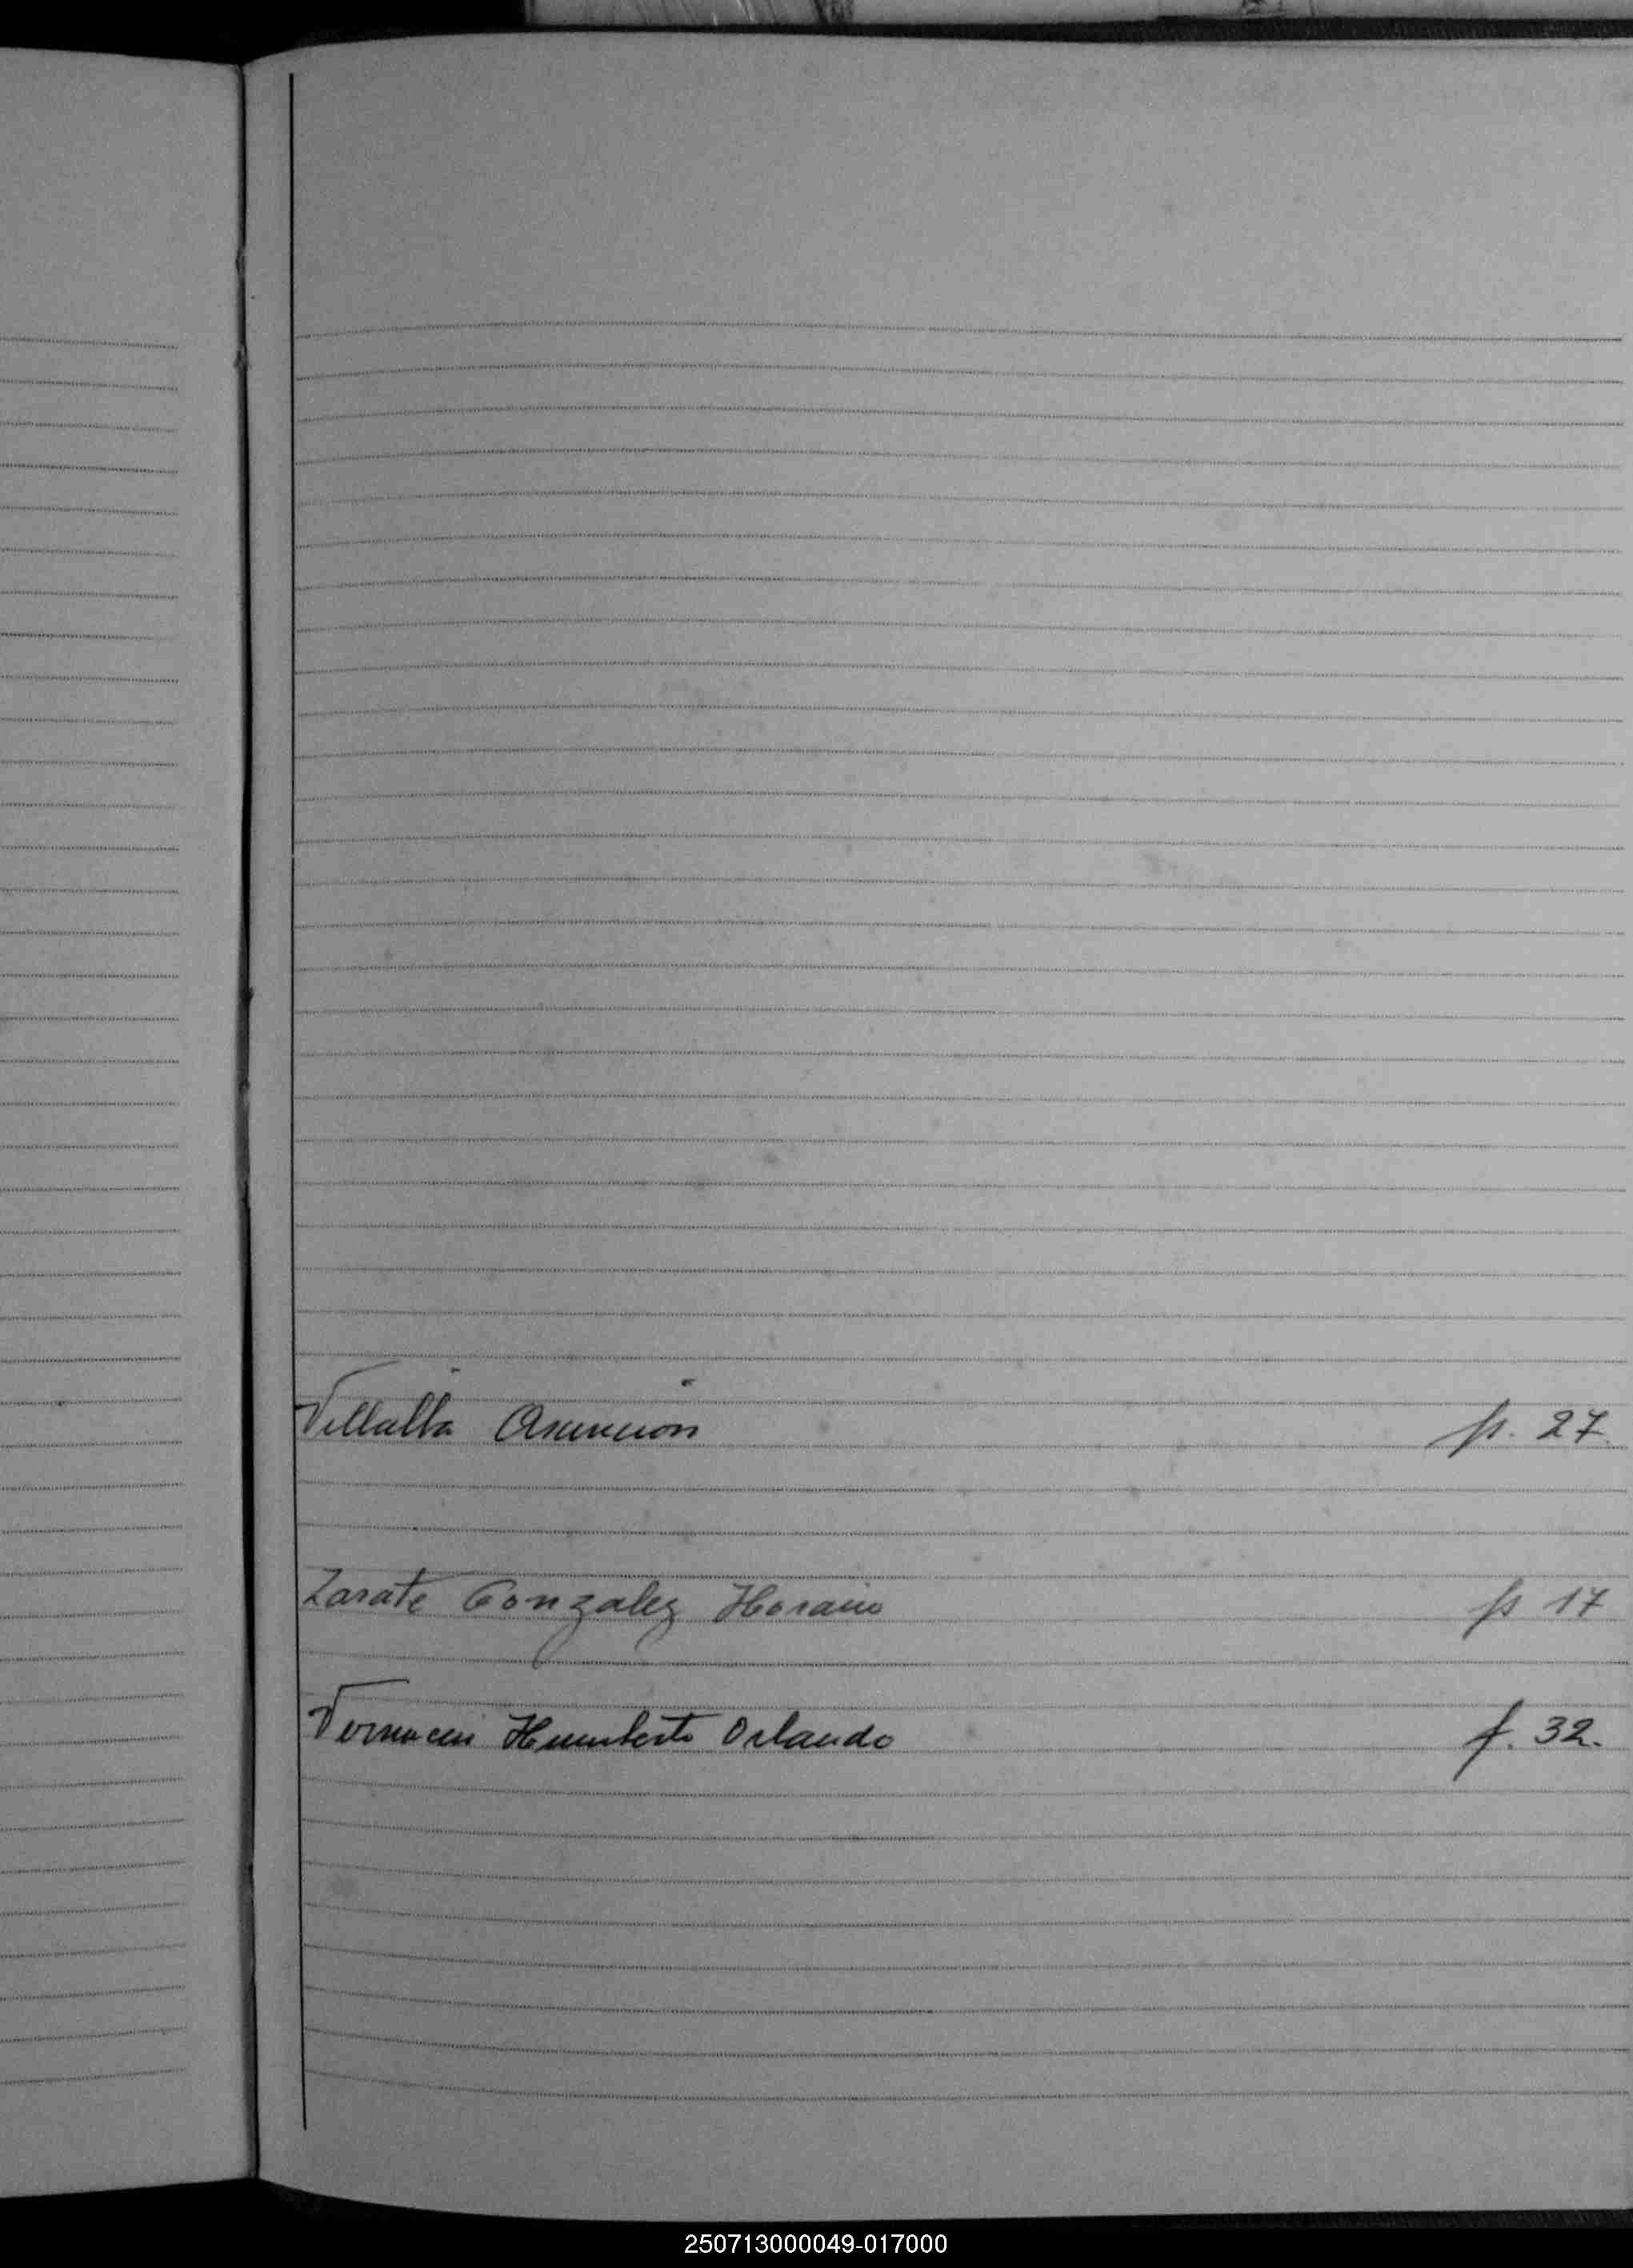 Villalba Asunción fs. 27.
Zarate Gonzalez Horacio fs 17
Humberto Orlando f. 32.
250713000049-017000